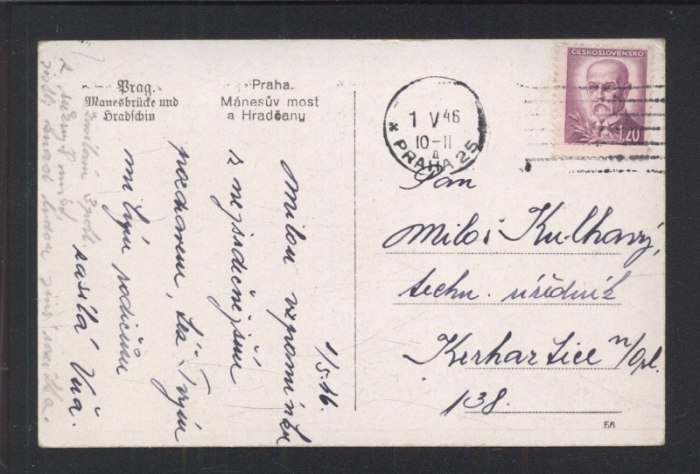 Prag.
Manesbrücke und
Hradschin
Praha.
Mánesův most
a Hradčany
1 V 46
10-11
* PRAHA 25
ČESKOSLOVENSKO
1,20
Pan
Miloš Kulhavý,
techn. úředník
Kerhartice n/Orl.
138.
56
1/5.46.
Milou vzpomínku
s nejsrdečnějším
pozdravem, též Tvým
milým rodičům
zasílá Vaš.